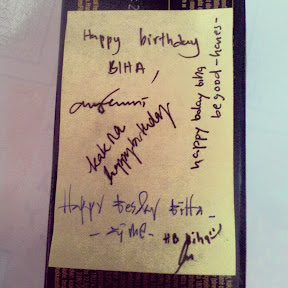 Happy birthday
BIHA,
kak na
happy birthday
happy bday biha
be good -hanes-
Happy Besday BiHa -
HB biha